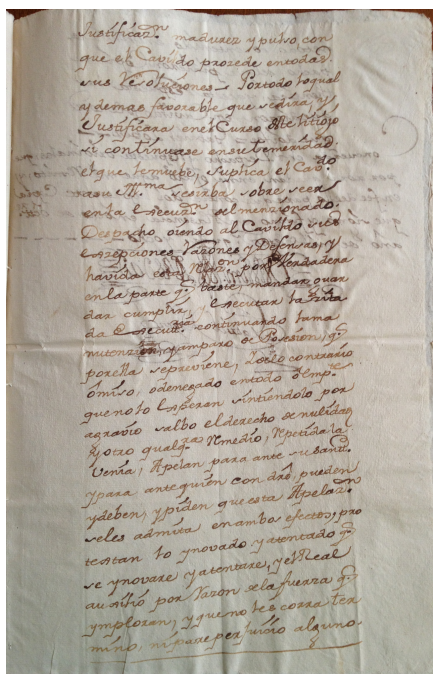 Justificaz.n madurez y pulso con
que el Cavildo prozede en todas
sus Resoluziones. Por todo lo qual
y demas favorable que se dira, y
Justificara en el Curso de el litijio
si continuase en su temeridad
el que le mueve, suplica el Cav.do
a su Ill.ma se sirba sobre seer
en la execuz.n del menzionado
Despacho oiendo al Cavildo sus
excepciones Razones y Defensas, y
havida esta Relaz.on por Verdadera
en la parte q.e baste mandar guar
dar cumplir, y executar la zita
da executt.a continuando la ma
nutenzion, y amparo de Posesion, q.e
por ella se previene, y de lo contrario
ômiso, ô denegado en todo ô emp.te
que no lo esperan sintiendolo por
agravio salbo el derecho de nulidad
y otro qualq.ra Remedio, Repetida la
Venia, Apelan para ante su Sant.d
y para ante quien con drô, pueden
y deben, y piden que esta Apelaz.n
se les admita en ambos efectos, pro
textan lo ynovado y atentado q.e
se ynovare y atentare, y el Real
auxilio por Razon de la fuerza q.e
ymploran, y que no les corra ter
mino, ni pare perjuicio alguno